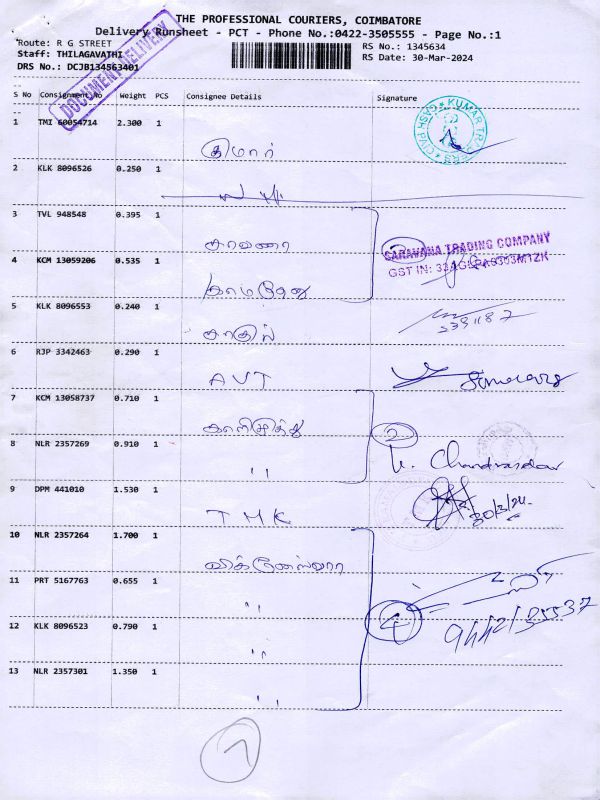 THE PROFESSIONAL COURIERS, COIMBATORE
Delivery Runsheet - PCT - Phone No.:0422-3505555 - Page No.:1
Route: R G STREET
RS No.: 1345634
Staff: THILAGAVATHI
RS Date: 30-Mar-2024
DRS No.: DCJB134563401
DOCUMENT DELIVERY
S No Consignment No Weight PCS Consignee Details Signature
1 TMI 60054714 2.300 1
குமார்
KUMAR TRADERS
2 KLK 8096526 0.250 1
3 TVL 948548 0.395 1
சரவணா
SARAVANA TRADING COMPANY
4 KCM 13059206 0.535 1
GST IN:
காமதேனு
5 KLK 8096553 0.240 1
6 RJP 3342463 0.290 1
AVT
7 KCM 13058737 0.710 1
காளிமுத்து
2
8 NLR 2357269 0.910 1
"
9 DPM 441010 1.530 1
30/3/24
TMK
10 NLR 2357264 1.700 1
விக்னேஸ்வரா
11 PRT 5167763 0.655 1
"
4
12 KLK 8096523 0.790 1
"
13 NLR 2357301 1.350 1
"